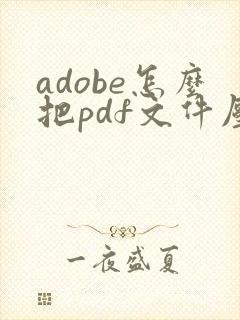 adobe怎麼
把pdf文件
一夜盛夏